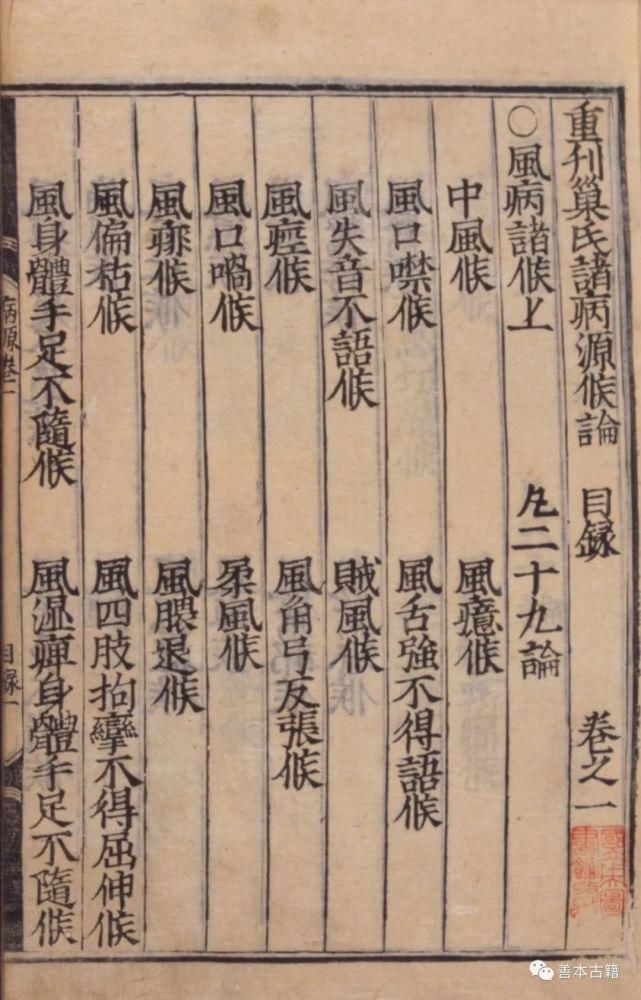 重刊巢氏諸病源候論 目録 卷之一
○風病諸候上 凡二十九論
中風候 風癔候
風口噤候 風舌強不得語候
風失音不語候 賊風候
風痙候 風角弓反張候
風口喎候 柔風候
風痱候 風腲退候
風偏枯候 風四肢拘攣不得屈伸候
風身體手足不隨候 風濕痺身體手足不隨候
病源卷一 目録 一
善本古籍